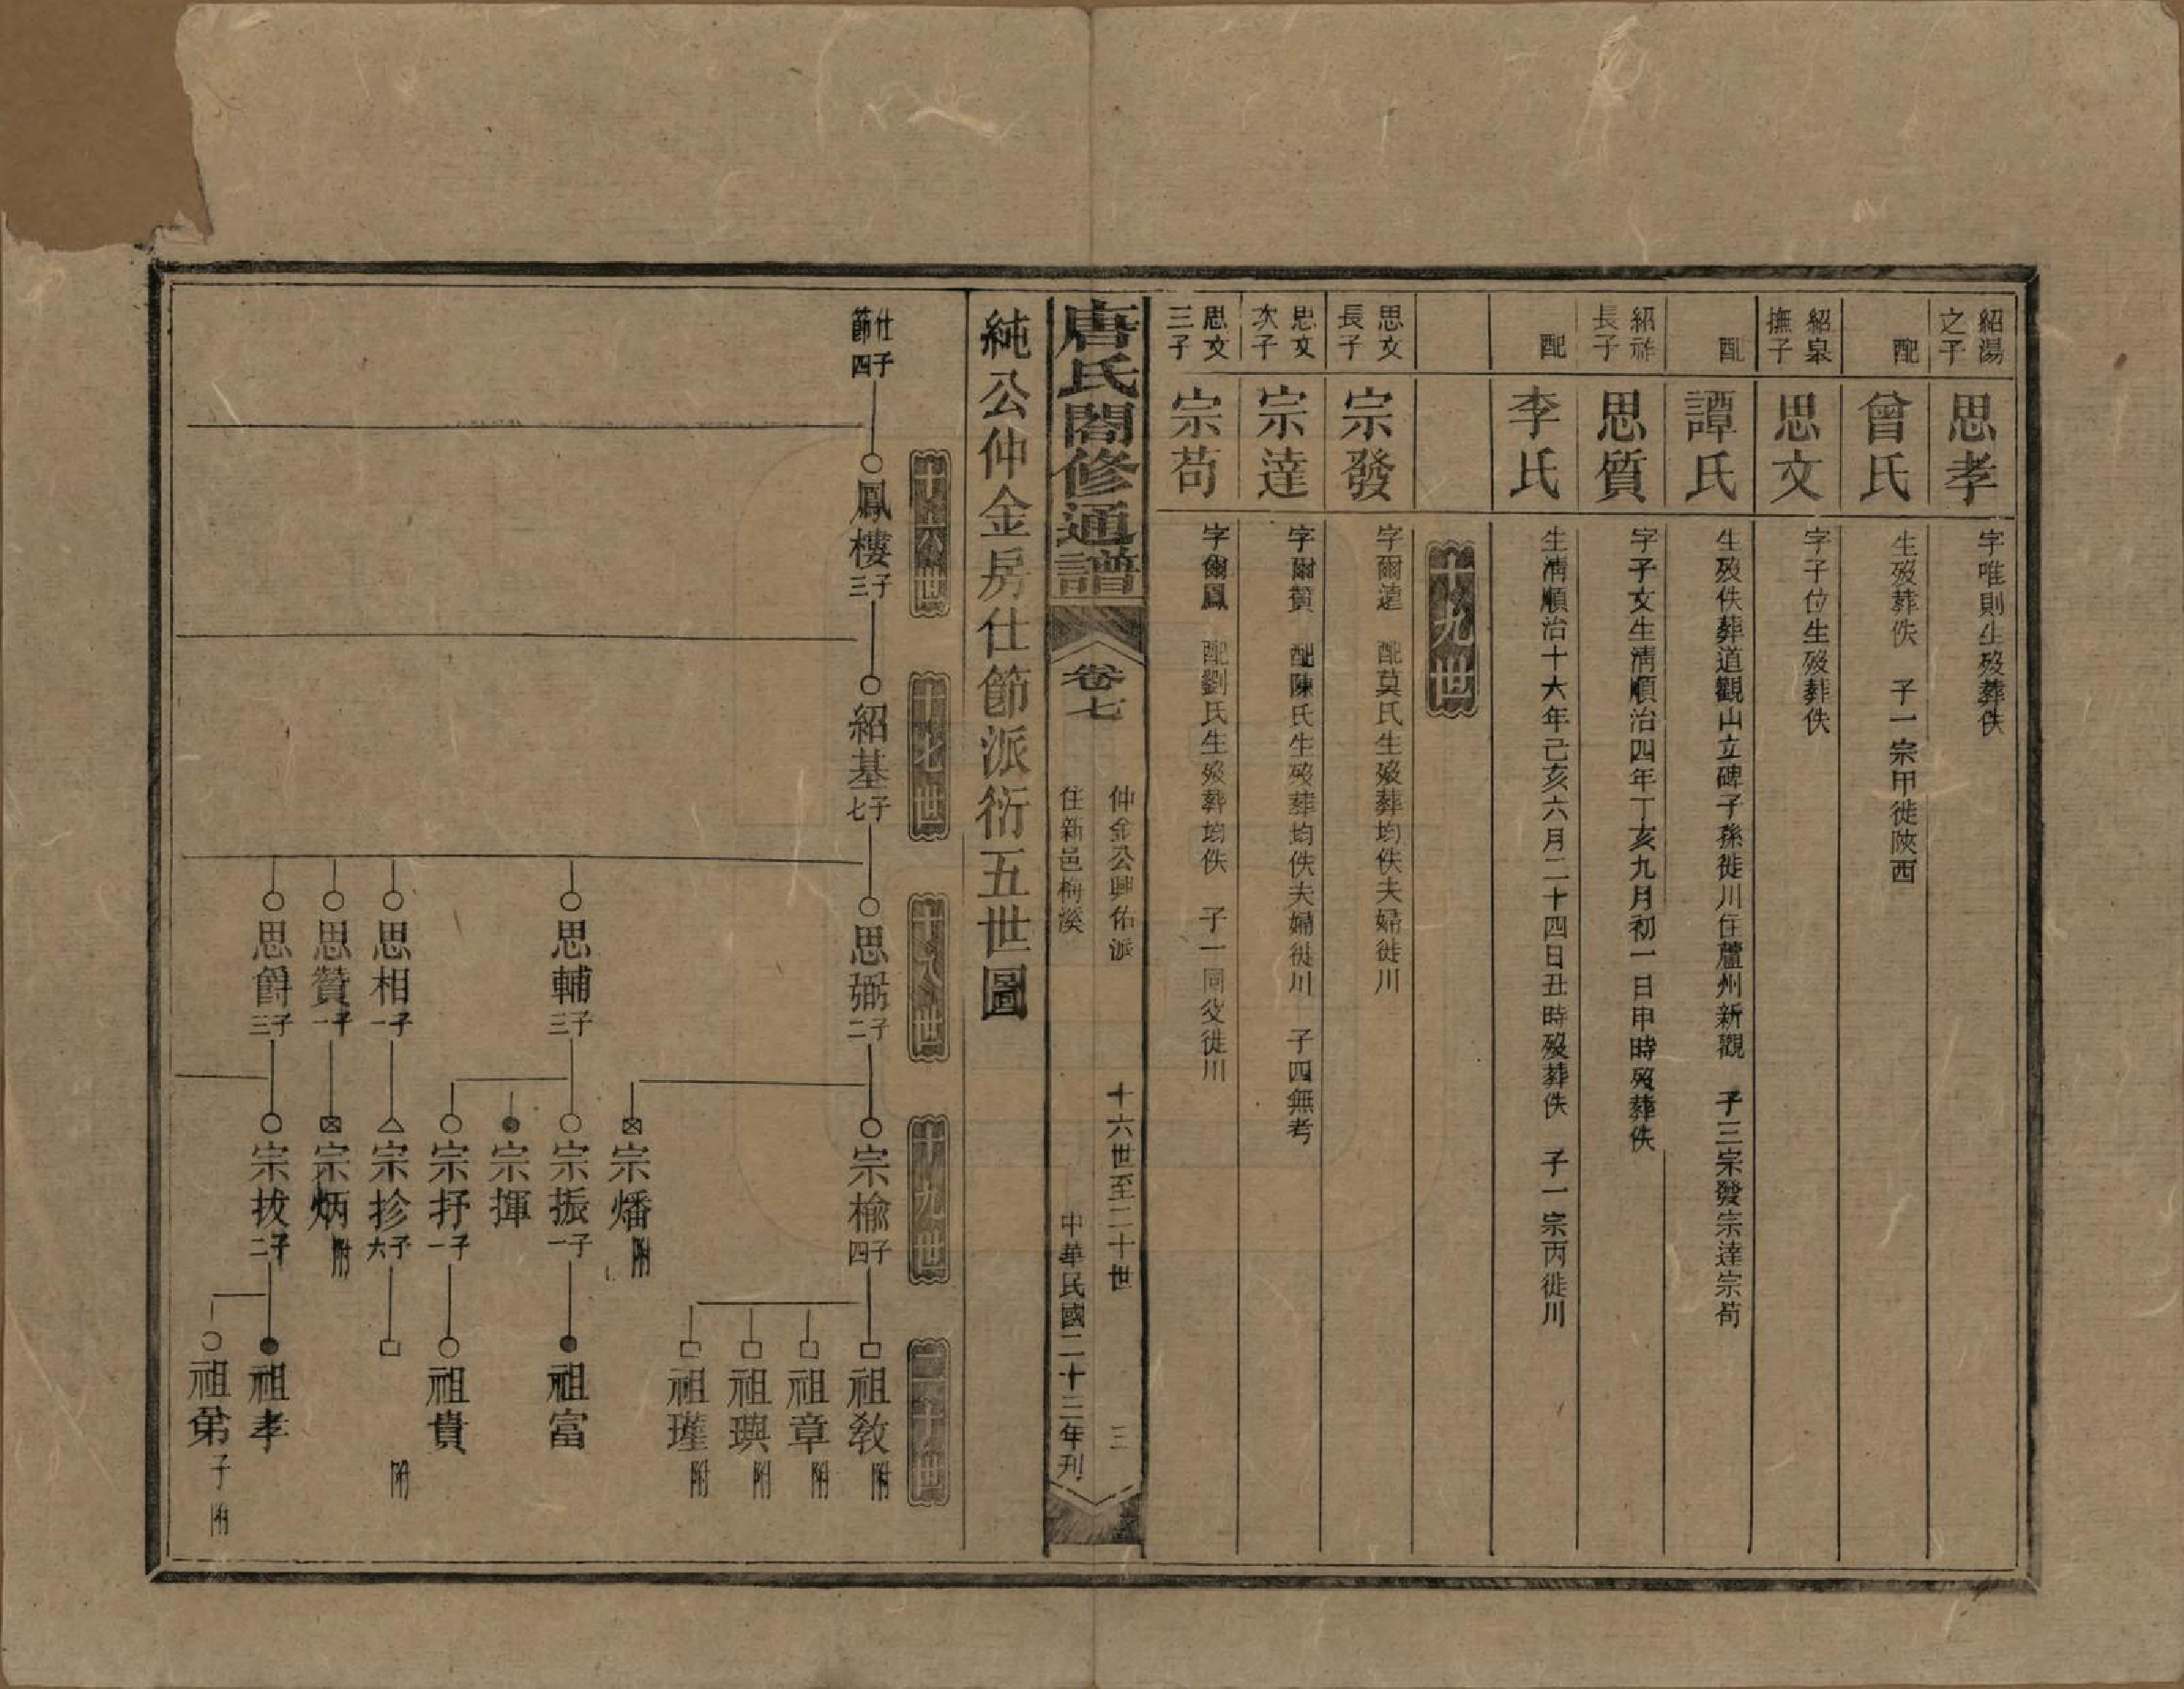 紹湯之子 思孝 字唯則生歿葬佚
配 曾氏 生歿葬佚 子一宗甲徙陝西
紹泉撫子 思文 字子位生歿葬佚
配 譚氏 生歿佚葬道觀山立碑子孫徙川住蘆州新觀 子三宗發宗達宗苟
紹祚長子 思質 字子文生淸順治四年丁亥九月初一日申時歿葬佚
配 李氏 生淸順治十六年己亥六月二十四日丑時歿葬佚 子一宗丙徙川
十九世
思文長子 宗發 字爾達 配莫氏生歿葬均佚夫婦徙川
思文次子 宗達 字爾贊 配陳氏生歿葬均佚夫婦徙川 子四無考
思文三子 宗苟 字爾鳳 配劉氏生歿葬均佚 子一同父徙川
唐氏閤修通譜 卷七
仲金公興佑派 十六世至二十世 三
住新邑梅溪 中華民國二十三年刊
純公仲金房仕節派衍五世圖
十六世 十七世 十八世 十九世 二十世
仕節四子 鳳樓三子 紹基七子 思弼二子 宗楡四子 祖敎附
祖章附
祖璵附
祖瑾附
宗燔附
思輔三子 宗振一子 祖富
宗揮
宗抒一子 祖貴
思相一子 宗抮六子 附
思贊一子 宗炳附
思爵三子 宗拔二子 祖孝
祖弟子附